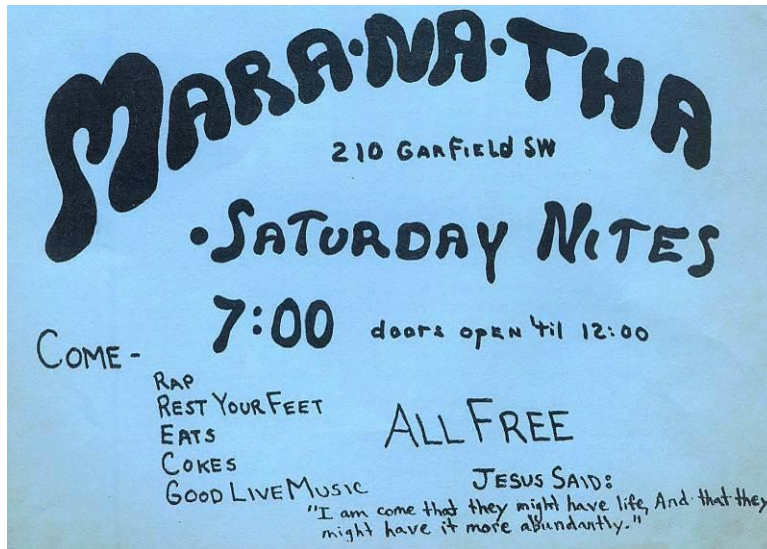 MARA·NA·THA
210 GARFIELD SW
·SATURDAY NITES
7:00 doors open 'til 12:00
COME -
RAP
REST YOUR FEET
EATS
COKES
GOOD LIVE MUSIC
ALL FREE
JESUS SAID:
"I am come that they might have life, And that they
might have it more abundantly."